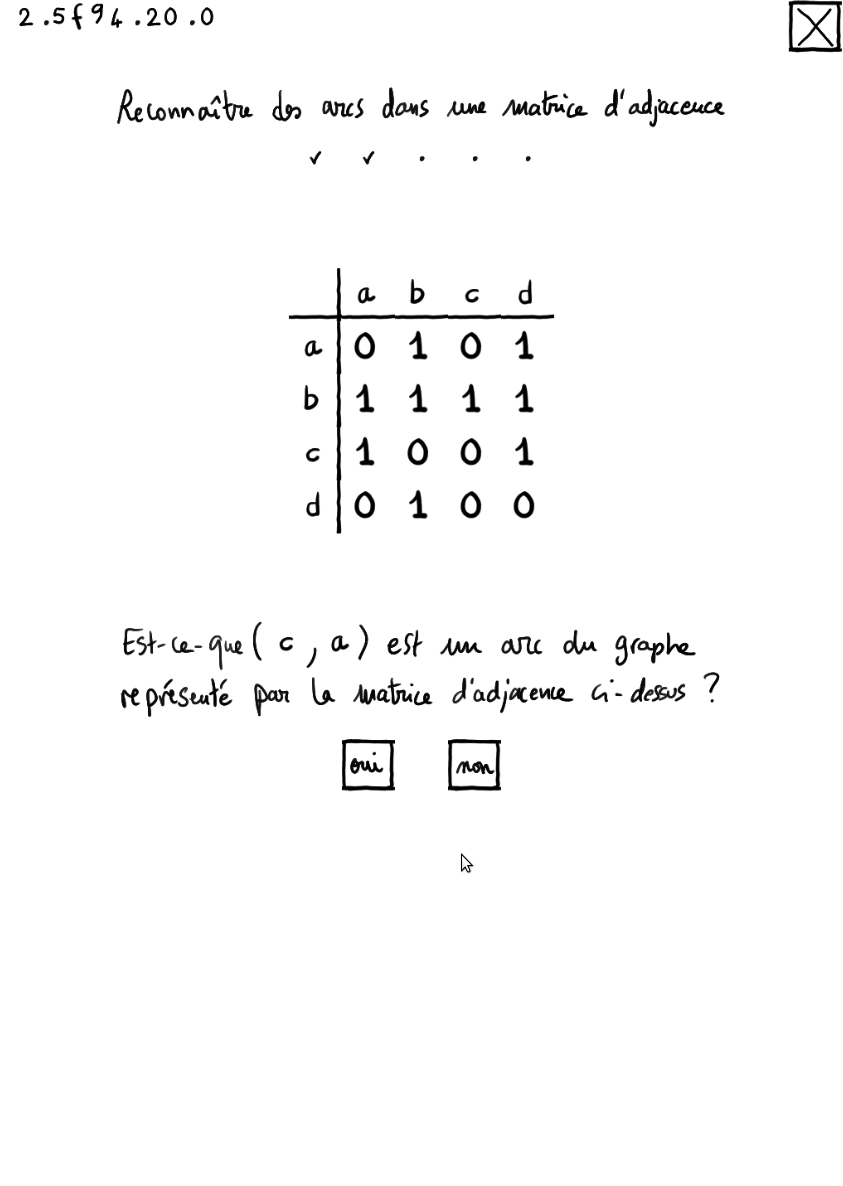 2.5f94.20.0
Reconnaître des arcs dans une matrice d'adjacence
✓ ✓ . . .
a b c d
a 0 1 0 1
b 1 1 1 1
c 1 0 0 1
d 0 1 0 0
Est-ce-que ( c , a ) est un arc du graphe
représenté par la matrice d'adjacence ci-dessus ?
oui non